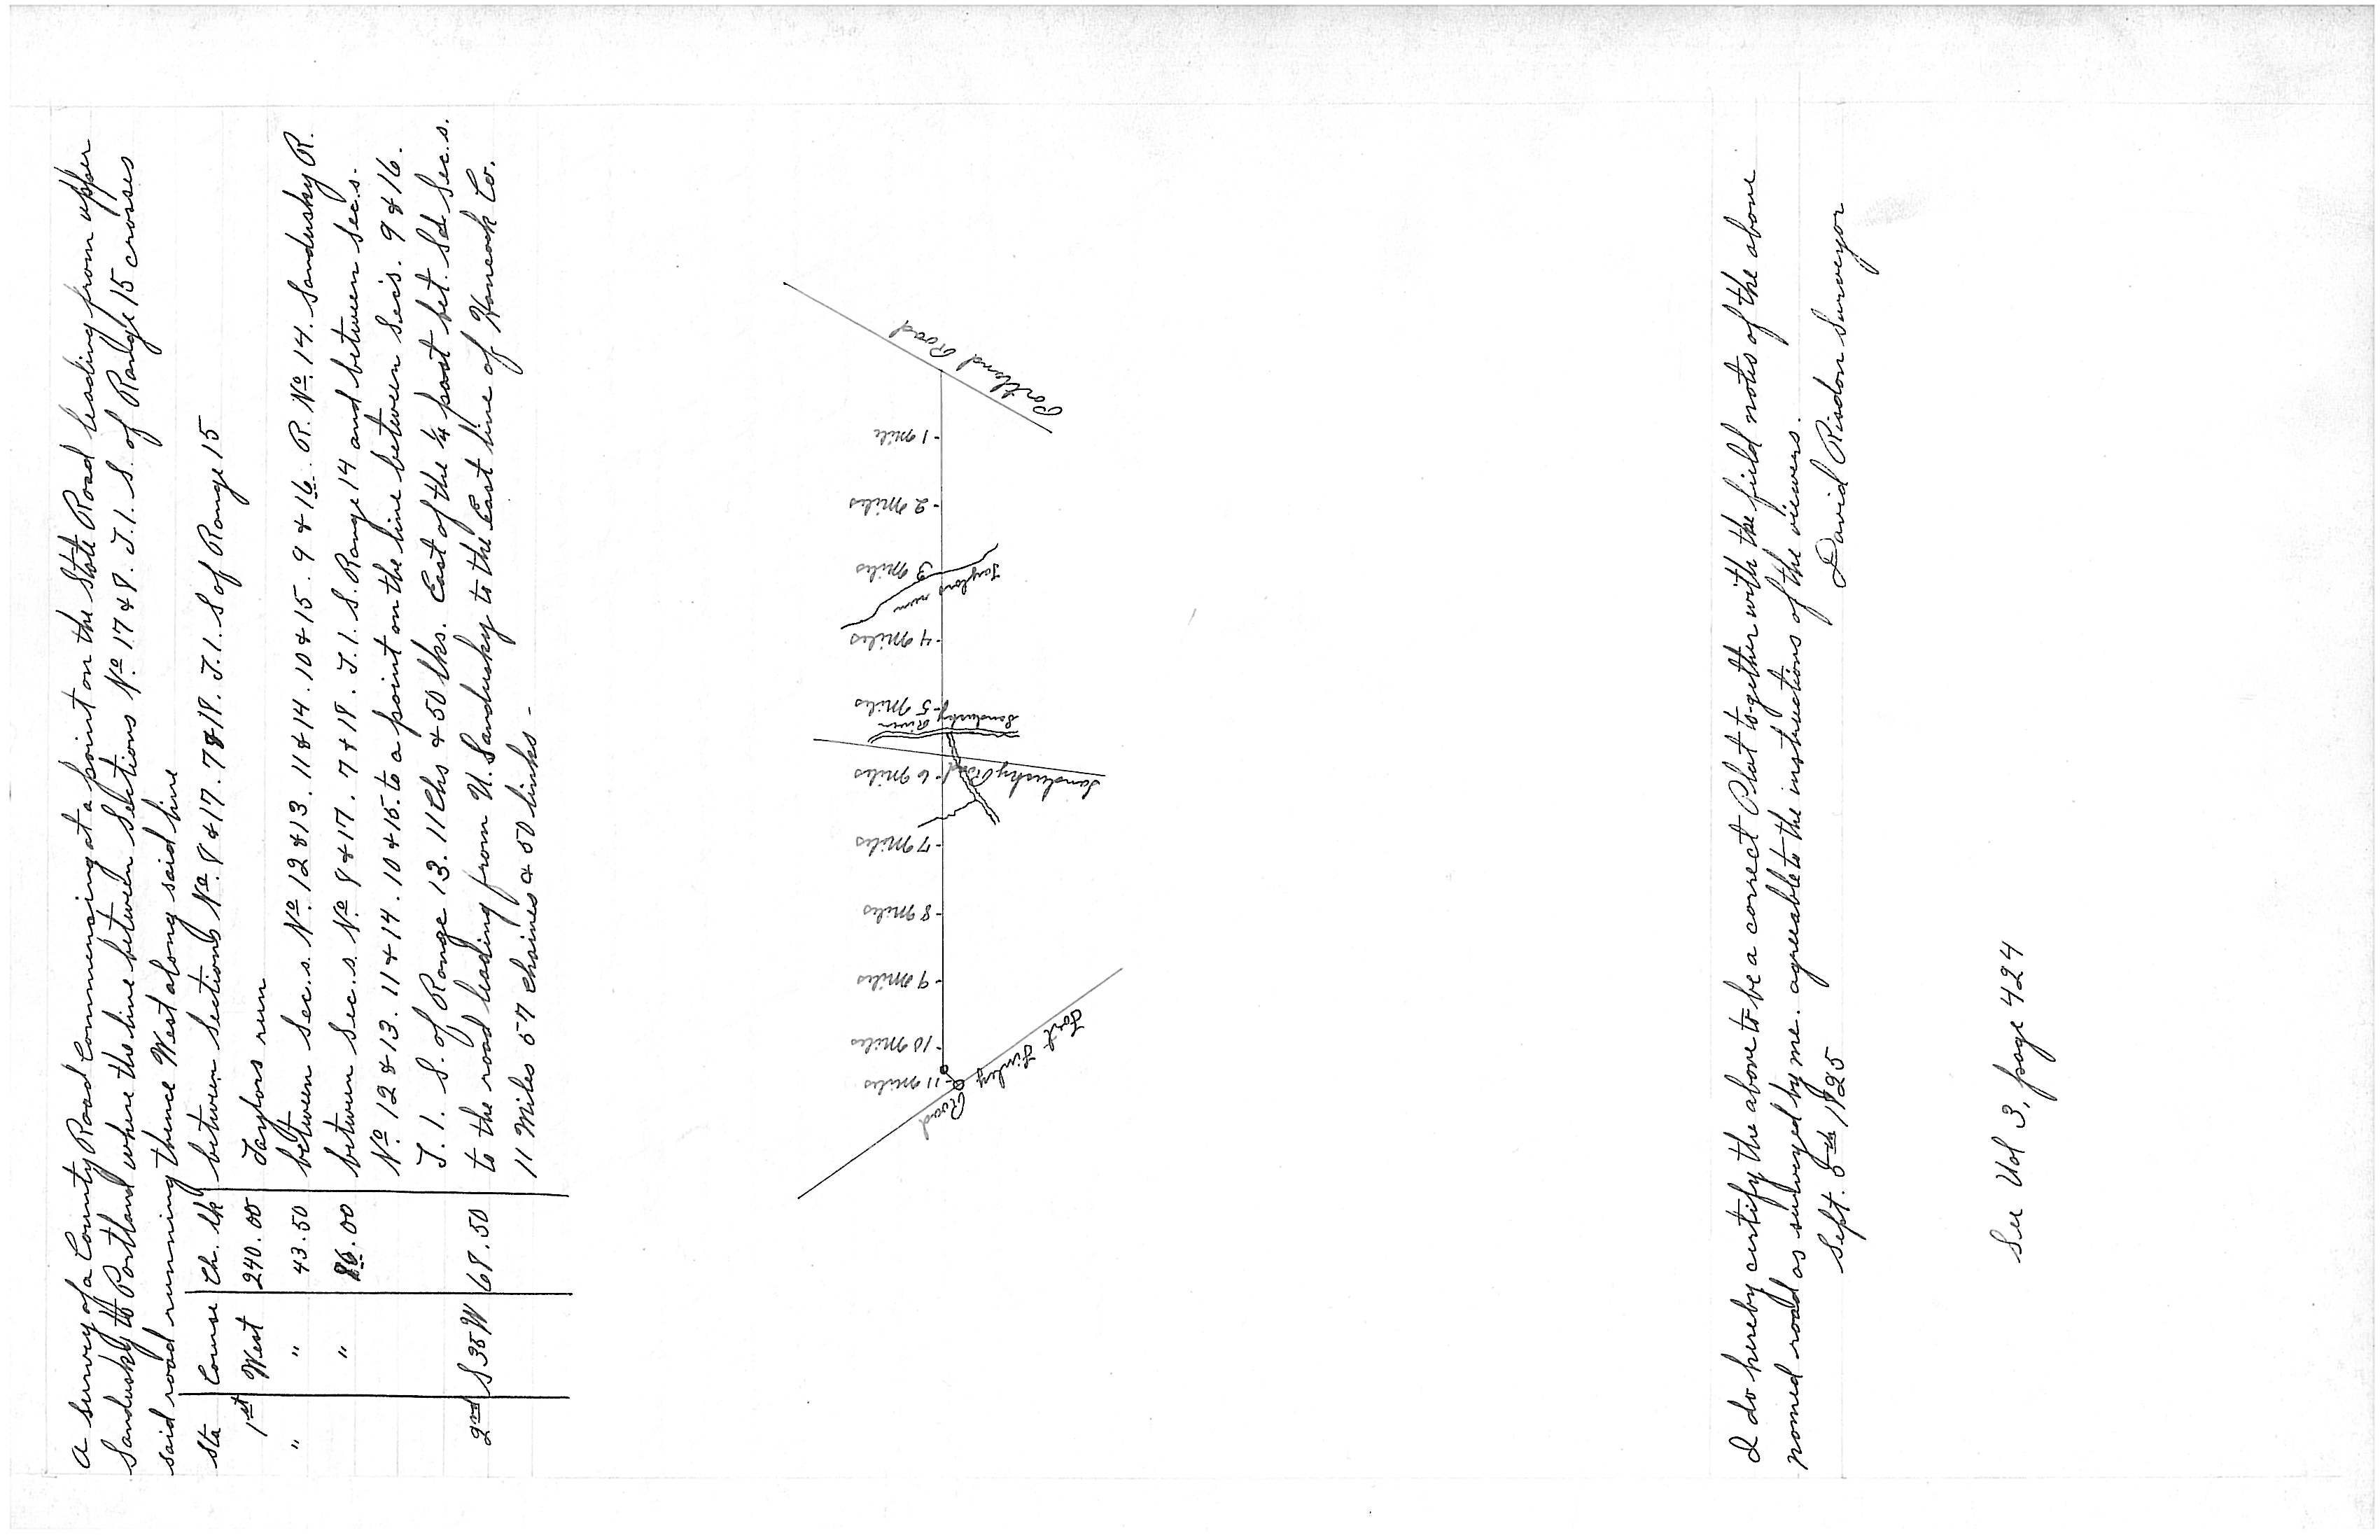 A survey of a County Road Commencing at a point on the State Road leading from upper
Sandusky to Portland where the line between Sections No 17 & 8. T. 1. S. of Range 15 crosses
said road running thence West along said line
Sta Course Ch. lk between Sections No. 8 & 17. 7 & 18. T. 1. S of Range 15
1st West 240.00 Taylors run
" " 43.50 between Sec.s. No 12 & 13. 11 & 14. 10 & 15. 9 & 16. R. No. 14. Sandusky R.
" 86.00 between Sec.s. No 8 & 17. 7 & 18. T. 1. S. Range 14 and between Sec.s.
No. 12 & 13. 11 & 14. 10 & 15. to a point on the line between Sec's. 9 & 16.
T. 1. S. of Range 13. 11 Chs & 50 lks. East of the 1/4 post bet. Sd Sec.s.
2nd S 35 W 68.50 to the road leading from U. Sandusky to the East line of Hancock Co.
11 Miles 57 chaines & 50 links -
Portland Road
- 1 Mile
- 2 Miles
3 Miles
Taylors run
- 4 Miles
- 5 Miles
Sandusky River
- 6 Miles
Sandusky Road
- 7 Miles
- 8 Miles
- 9 Miles
- 10 Miles
- 11 Miles
Fort Finley
Road
I do hereby certify the above to be a correct Plat to-gether with the field notes of the above
named road as surveyed by me. agreeable to the instructions of the viewers.
Sept. 8th 1825 David Risdon Surveyor
See Vol 3, page 424